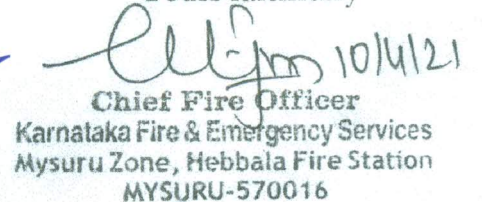 10/4/21
Chief Fire Officer
Karnataka Fire & Emergency Services
Mysuru Zone, Hebbala Fire Station
MYSURU-570016